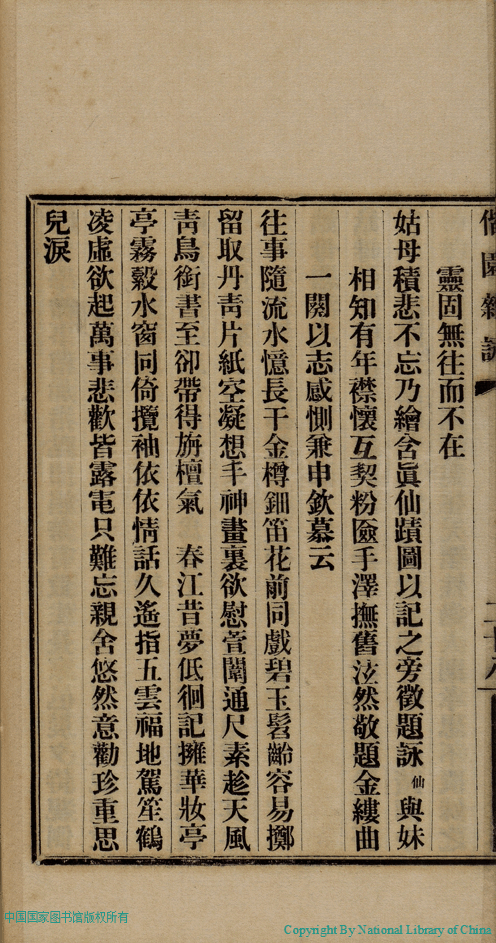 偕園雜詠
靈固無往而不在
姑母積悲不忘乃繪含眞仙蹟圖以記之旁徵題詠仙與妹
相知有年襟懷互契粉匳手澤撫舊泫然敬題金縷曲
一闋以志感惻兼申欽慕云
往事隨流水憶長干金樽鈿笛花前同戲碧玉髫齡容易擲
留取丹靑片紙空凝想手神畫裏欲慰萱闈通尺素趁天風
靑鳥銜書至卻帶得旃檀氣　春江昔夢低徊記擁華妝亭
亭霧縠水窗同倚攬袖依依情話久遙指五雲福地駕笙鶴
凌虛欲起萬事悲歡皆露電只難忘親舍悠然意勸珍重思
兒淚
中国国家图书馆版权所有
Copyright By National Library of China